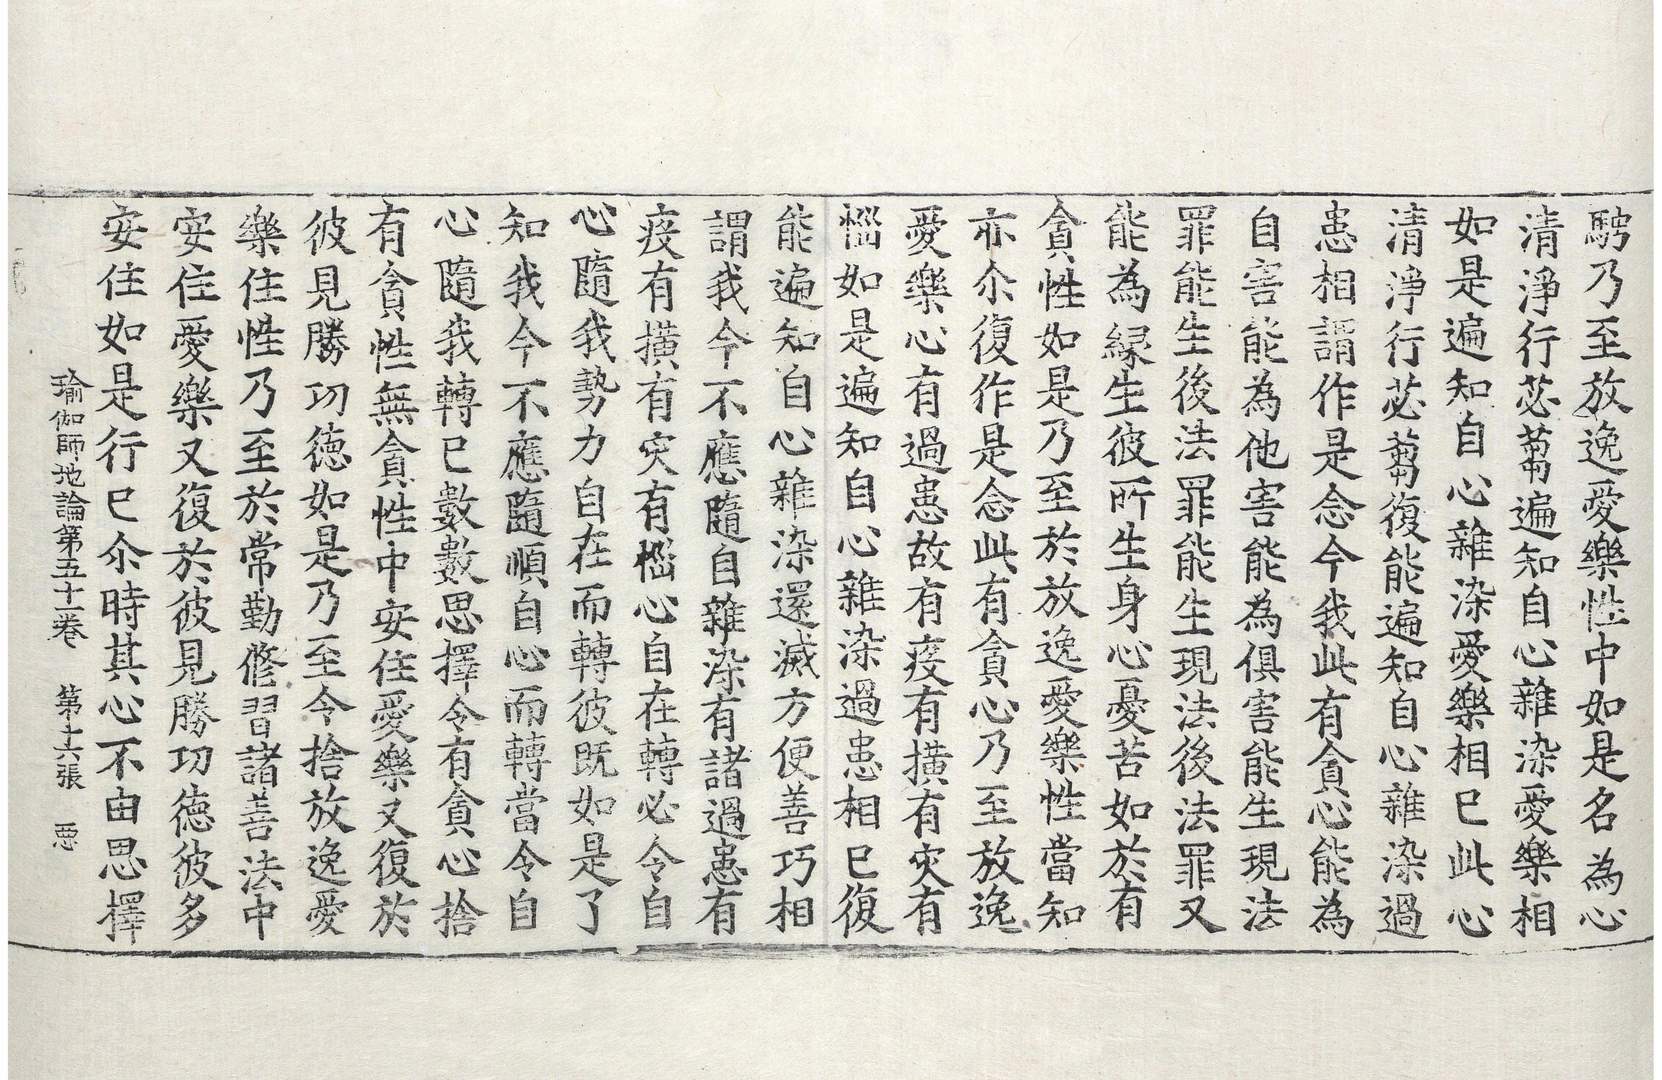 騁乃至放逸愛樂性中如是名為心
清淨行苾蒭遍知自心雜染愛樂相
如是遍知自心雜染愛樂相已此心
清淨行苾蒭復能遍知自心雜染過
患相謂作是念今我此有貪心能為
自害能為他害能為俱害能生現法
罪能生後法罪能生現法後法罪又
能為緣生彼所生身心憂苦如於有
貪性如是乃至於放逸愛樂性當知
亦尒復作是念此有貪心乃至放逸
愛樂心有過患故有疫有撗有灾有
惱如是遍知自心雜染過患相已復
能遍知自心雜染還滅方便善巧相
謂我今不應隨自雜染有諸過患有
疫有撗有灾有惱心自在轉必令自
心隨我勢力自在而轉彼既如是了
知我今不應隨順自心而轉當令自
心隨我轉已數數思擇令有貪心捨
有貪性無貪性中安住愛樂又復於
彼見勝功德如是乃至令捨放逸愛
樂住性乃至於常勤修習諸善法中
安住愛樂又復於彼見勝功德彼多
安住如是行已尒時其心不由思擇
瑜伽師地論第五十一卷　第十六張　惡